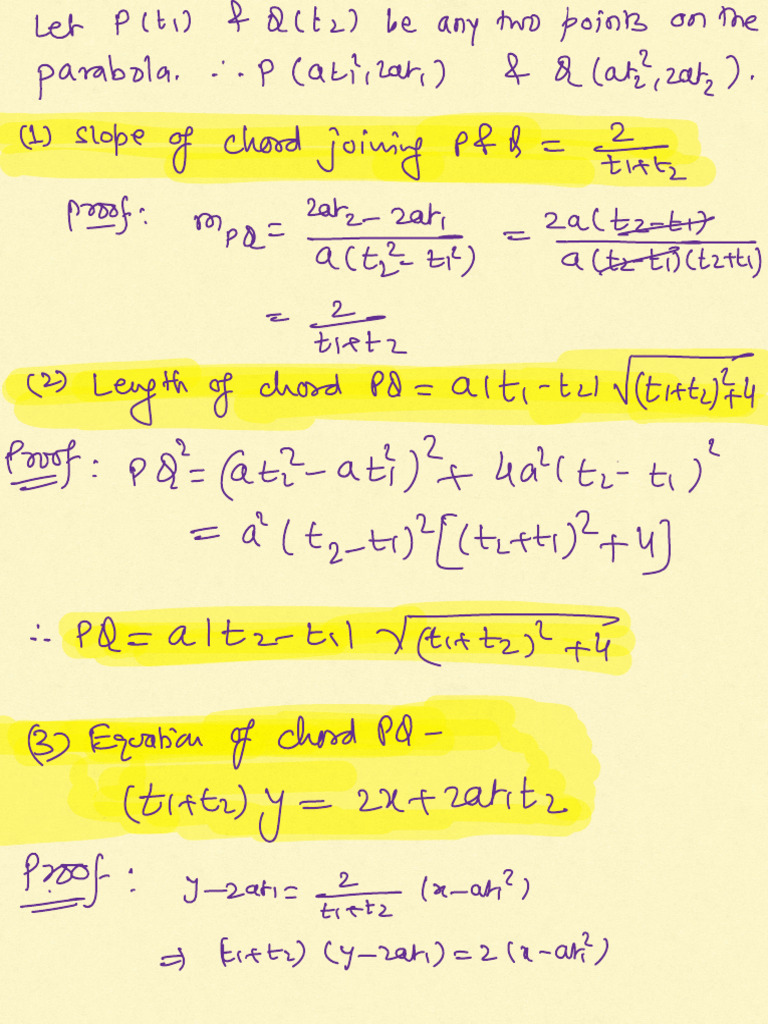 Let P(t₁) & Q(t₂) be any two points on the
parabola. ∴ P(at₁², 2at₁) & Q(at₂², 2at₂).
(1) Slope of chord joining P & Q = 2/(t₁+t₂)
Proof: m_PQ = (2at₂ - 2at₁)/(a(t₂² - t₁²)) = 2a(t₂-t₁)/(a(t₂-t₁)(t₂+t₁))
= 2/(t₁+t₂)
(2) Length of chord PQ = a|t₁-t₂| √((t₁+t₂)²+4)
Proof: PQ² = (at₂² - at₁²)² + 4a²(t₂ - t₁)²
= a²(t₂-t₁)²[(t₂+t₁)²+4]
∴ PQ = a|t₂-t₁| √((t₁+t₂)²+4)
(3) Equation of chord PQ -
(t₁+t₂)y = 2x+2at₁t₂
Proof: y-2at₁ = 2/(t₁+t₂) (x-at₁²)
⇒ (t₁+t₂) (y-2at₁) = 2(x-at₁²)